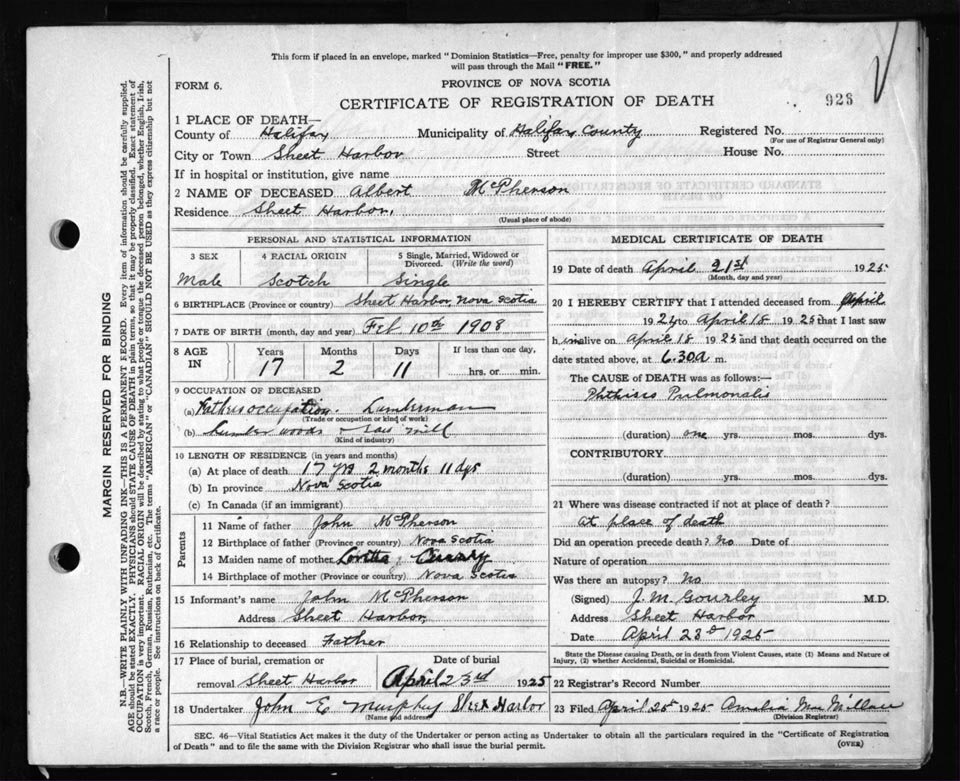 This form if placed in an envelope, marked "Dominion Statistics—Free, penalty for improper use $300," and properly addressed
will pass through the Mail "FREE."
FORM 6.
PROVINCE OF NOVA SCOTIA
CERTIFICATE OF REGISTRATION OF DEATH
928
1 PLACE OF DEATH—
County of Halifax Municipality of Halifax County Registered No.
(For use of Registrar General only)
City or Town Sheet Harbor Street House No.
If in hospital or institution, give name
2 NAME OF DECEASED Albert McPherson
Residence Sheet Harbor,
(Usual place of abode)
MARGIN RESERVED FOR BINDING
N.B.—WRITE PLAINLY WITH UNFADING INK—THIS IS A PERMANENT RECORD. Every item of information should be carefully supplied.
AGE should be stated EXACTLY. PHYSICIANS should STATE CAUSE OF DEATH in plain terms, so that it may be properly classified. Exact statement of
OCCUPATION is very important. RACIAL ORIGIN will be described by stating to what people or tongue the deceased person belonged, whether English, Irish,
Scotch, French, German, Russian, Ruthenian, etc. The terms "AMERICAN" or "CANADIAN" SHOULD NOT BE USED as they express citizenship but not
a race or people. See instructions on back of Certificate.
PERSONAL AND STATISTICAL INFORMATION
3 SEX 4 RACIAL ORIGIN 5 Single, Married, Widowed or
Divorced. (Write the word)
Male Scotch Single
6 BIRTHPLACE (Province or country) Sheet Harbor, Nova Scotia
7 DATE OF BIRTH (month, day and year) Feb 10th 1908
8 AGE
IN
Years Months Days If less than one day,
17 2 11 hrs. or min.
9 OCCUPATION OF DECEASED
(a) Fathers occupation. Lumberman
(Trade or occupation or kind of work)
(b) Lumber woods & saw mill
(Kind of industry)
10 LENGTH OF RESIDENCE (in years and months)
(a) At place of death 17 yrs 2 months 11 dys
(b) In province Nova Scotia
(c) In Canada (if an immigrant)
Parents
11 Name of father John McPherson
12 Birthplace of father (Province or country) Nova Scotia
13 Maiden name of mother Loretta
14 Birthplace of mother (Province or country) Nova Scotia
15 Informant's name John McPherson
Address Sheet Harbor,
16 Relationship to deceased Father
17 Place of burial, cremation or Date of burial
removal Sheet Harbor April 23rd 1925
18 Undertaker John E Murphy Sheet Harbor
(Name and address)
MEDICAL CERTIFICATE OF DEATH
19 Date of death April 21st 1925
(Month, day and year)
20 I HEREBY CERTIFY that I attended deceased from April
1924 to April 18 1925 that I last saw
him alive on April 18 1925 and that death occurred on the
date stated above, at 6.30 a m.
The CAUSE of DEATH was as follows:—
Phthisis Pulmonalis
(duration) one yrs. mos. dys.
CONTRIBUTORY
(duration) yrs. mos. dys.
21 Where was disease contracted if not at place of death?
At place of death
Did an operation precede death? No Date of
Nature of operation
Was there an autopsy? No
(Signed) J. M. Gourley M.D.
Address Sheet Harbor
Date April 23d 1925
State the Disease causing Death, or in death from Violent Causes, state (1) Means and Nature of
Injury, (2) whether Accidental, Suicidal or Homicidal.
22 Registrar's Record Number
23 Filed April 25 1925 Amelia MacMillan
(Division Registrar)
SEC. 46—Vital Statistics Act makes it the duty of the Undertaker or person acting as Undertaker to obtain all the particulars required in the "Certificate of Registration
of Death" and to file the same with the Division Registrar who shall issue the burial permit.
(OVER)